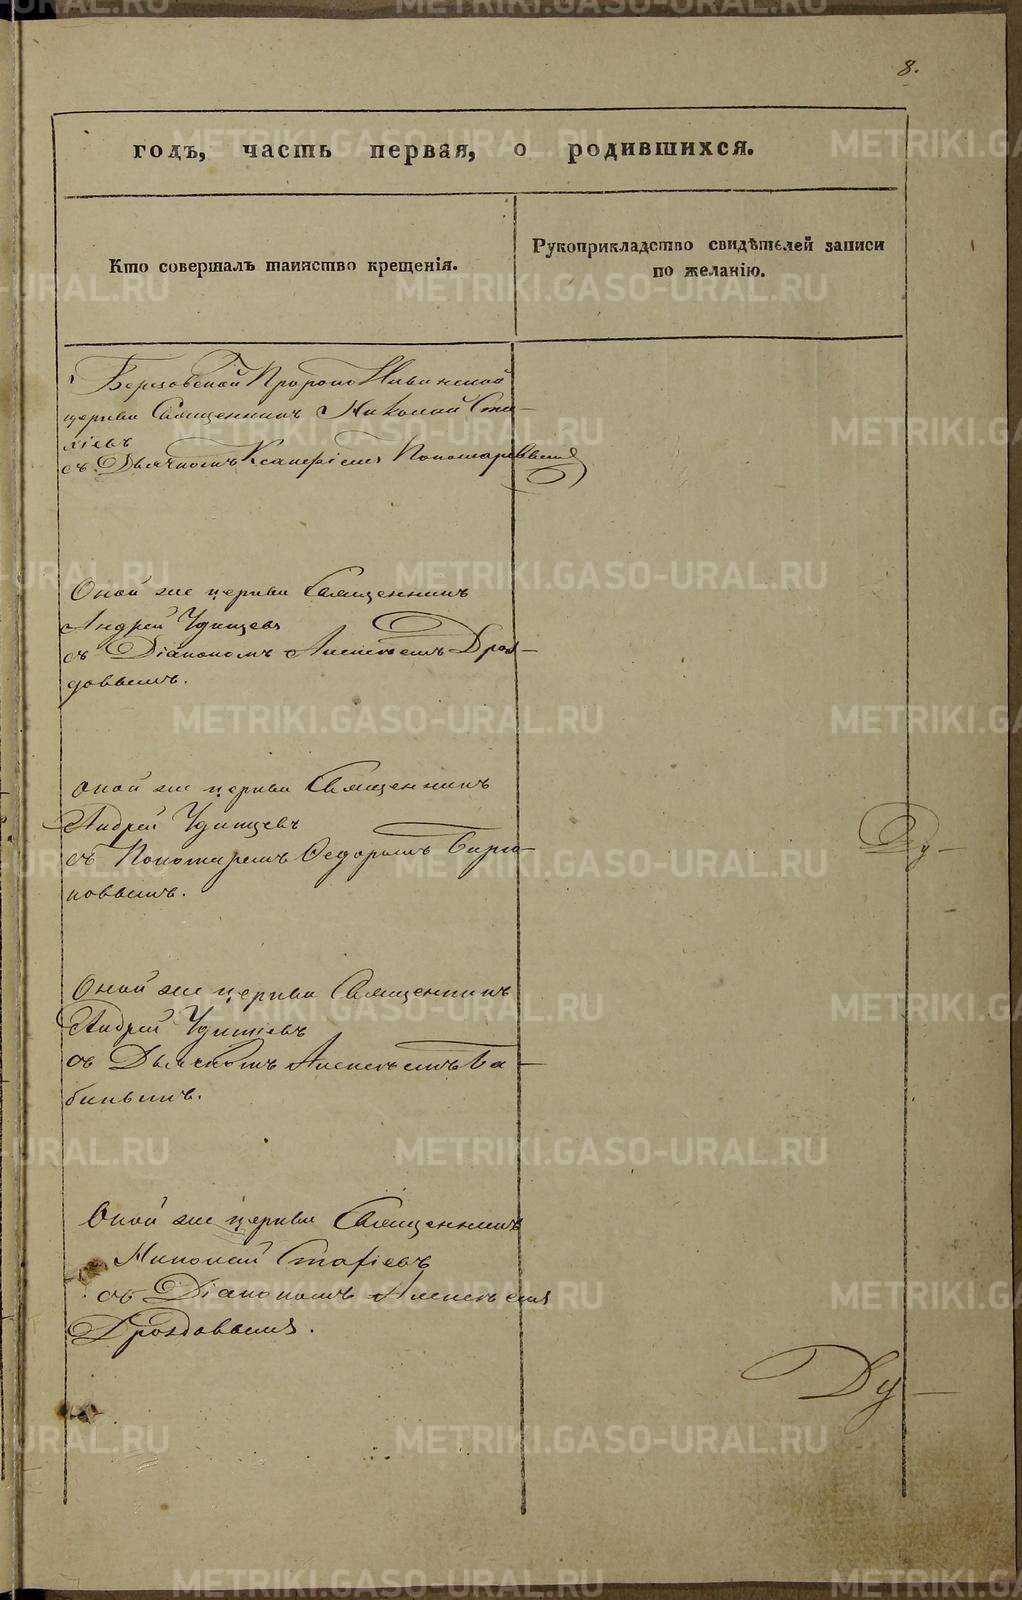 8.
годъ, часть первая, о родившихся.
Кто совершалъ таинство крещенія.
Рукоприкладство свидѣтелей записи
по желанію.
Березовской Пророко Ильинской
церкви Священникъ Николай Ста-
фіевъ
съ Дьячкомъ Ксанфіемъ Пономаревымъ
Оной же церкви Священникъ
Андрей Удинцевъ
съ Діакономъ Алексѣемъ Дроз-
довымъ.
Оной же церкви Священникъ
Андрей Удинцевъ
съ Пономаремъ Ѳедоромъ
Оной же церкви Священникъ
Андрей Удинцевъ
съ Дьячкомъ Алексѣемъ Ба-
бинымъ.
Оной же церкви Священникъ
Николай Стафіевъ
съ Діакономъ Алексѣемъ
Дроздовымъ.
METRIKI.GASO-URAL.RU